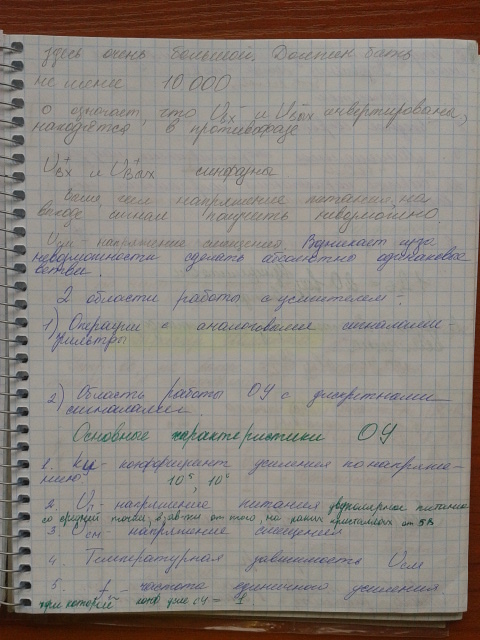 здесь очень большой, Должен быть
не мене 10 000
о означает, что Uвх⁻ и Uвых инвертированы,
находятся в противофазе
Uвх⁺ и Uвых⁺ синфазны
Выше чем напряжение питания на
входе сигнал получить невозможно
Uсм напряжение смещения. Возникает из за
невозможности сделать абсолютно одинаковые
ветви.
2 области работы с усилителем:
1) Операции с аналоговыми сигналами
фильтры
2) Область работы ОУ с дискретными
сигналами
Основные характеристики ОУ
1. Ku - коэффициент усиления по напряже-
нию 10⁵, 10⁶
2. Uп - напряжение питания двухполярное питание
со средней точкой, в зав-ти от того, на каких кристаллах от 5В
3. Uсм - напряжение смещения
4 Температурная зависимость Uсм
5. - частота единичного усиления
при которой коэф ОУ = 1